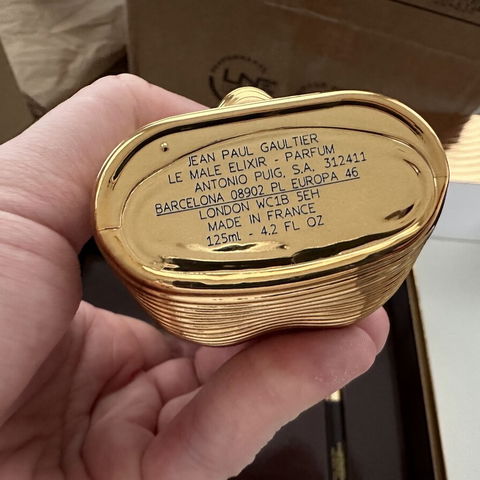 JEAN PAUL GAULTIER
LE MALE ELIXIR - PARFUM
ANTONIO PUIG, S.A. 312411
BARCELONA 08902 PL EUROPA 46
LONDON WC1B 5EH
MADE IN FRANCE
125ml - 4.2 FL OZ